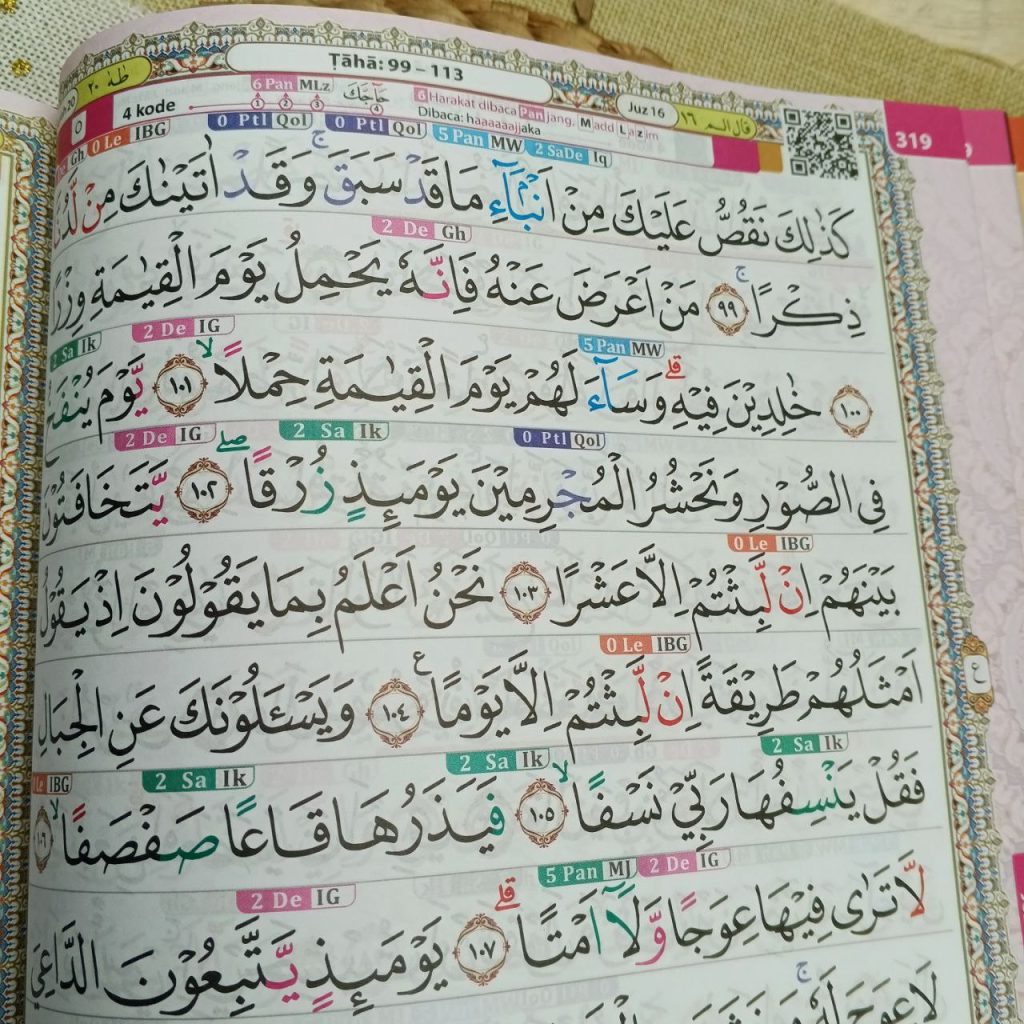 Ṭāhā: 99 – 113
طٰهٰ ٢٠
Juz 16
قال الم ١٦
319
4 kode
6 Pan MLz
حَآجَّكَ
6 Harakat dibaca Panjang. Madd Lazim
Dibaca: hãaaaaajjaka
Gh 0 Le IBG 0 Ptl Qol 0 Ptl Qol 5 Pan MW 2 SaDe Iq
كَذٰلِكَ نَقُصُّ عَلَيْكَ مِنْ اَنْۢبَاۤءِ مَا قَدْ سَبَقَۚ وَقَدْ اٰتَيْنٰكَ مِنْ
2 De Gh
ذِكْرًاۚ ٩٩ مَنْ اَعْرَضَ عَنْهُ فَاِنَّهٗ يَحْمِلُ يَوْمَ الْقِيٰمَةِ
2 Sa Ik 2 De IG 5 Pan MW
١٠٠ خٰلِدِيْنَ فِيْهِۗ وَسَاۤءَ لَهُمْ يَوْمَ الْقِيٰمَةِ حِمْلًاۙ ١٠١ يَّوْمَ
2 De IG 2 Sa Ik 0 Ptl Qol
فِى الصُّوْرِ وَنَحْشُرُ الْمُجْرِمِيْنَ يَوْمَىِٕذٍ زُرْقًاۖ ١٠٢ يَّتَخَافَتُوْنَ
0 Le IBG
بَيْنَهُمْ اِنْ لَّبِثْتُمْ اِلَّا عَشْرًا ١٠٣ نَحْنُ اَعْلَمُ بِمَا يَقُوْلُوْنَ اِذْ يَقُوْلُ
0 Le IBG
اَمْثَلُهُمْ طَرِيْقَةً اِنْ لَّبِثْتُمْ اِلَّا يَوْمًا ع ١٠٤ وَيَسْـَٔلُوْنَكَ عَنِ الْجِبَالِ
Le IBG 2 Sa Ik 2 Sa Ik 2 Sa Ik
فَقُلْ يَنْسِفُهَا رَبِّيْ نَسْفًاۙ ١٠٥ فَيَذَرُهَا قَاعًا صَفْصَفًاۙ ١٠٦
2 De IG 5 Pan MJ 2 De IG
لَّا تَرٰى فِيْهَا عِوَجًا وَّلَآ اَمْتًاۗ ١٠٧ يَوْمَىِٕذٍ يَّتَّبِعُوْنَ الدَّاعِيَ
لَا عِوَجَ لَهٗۚ